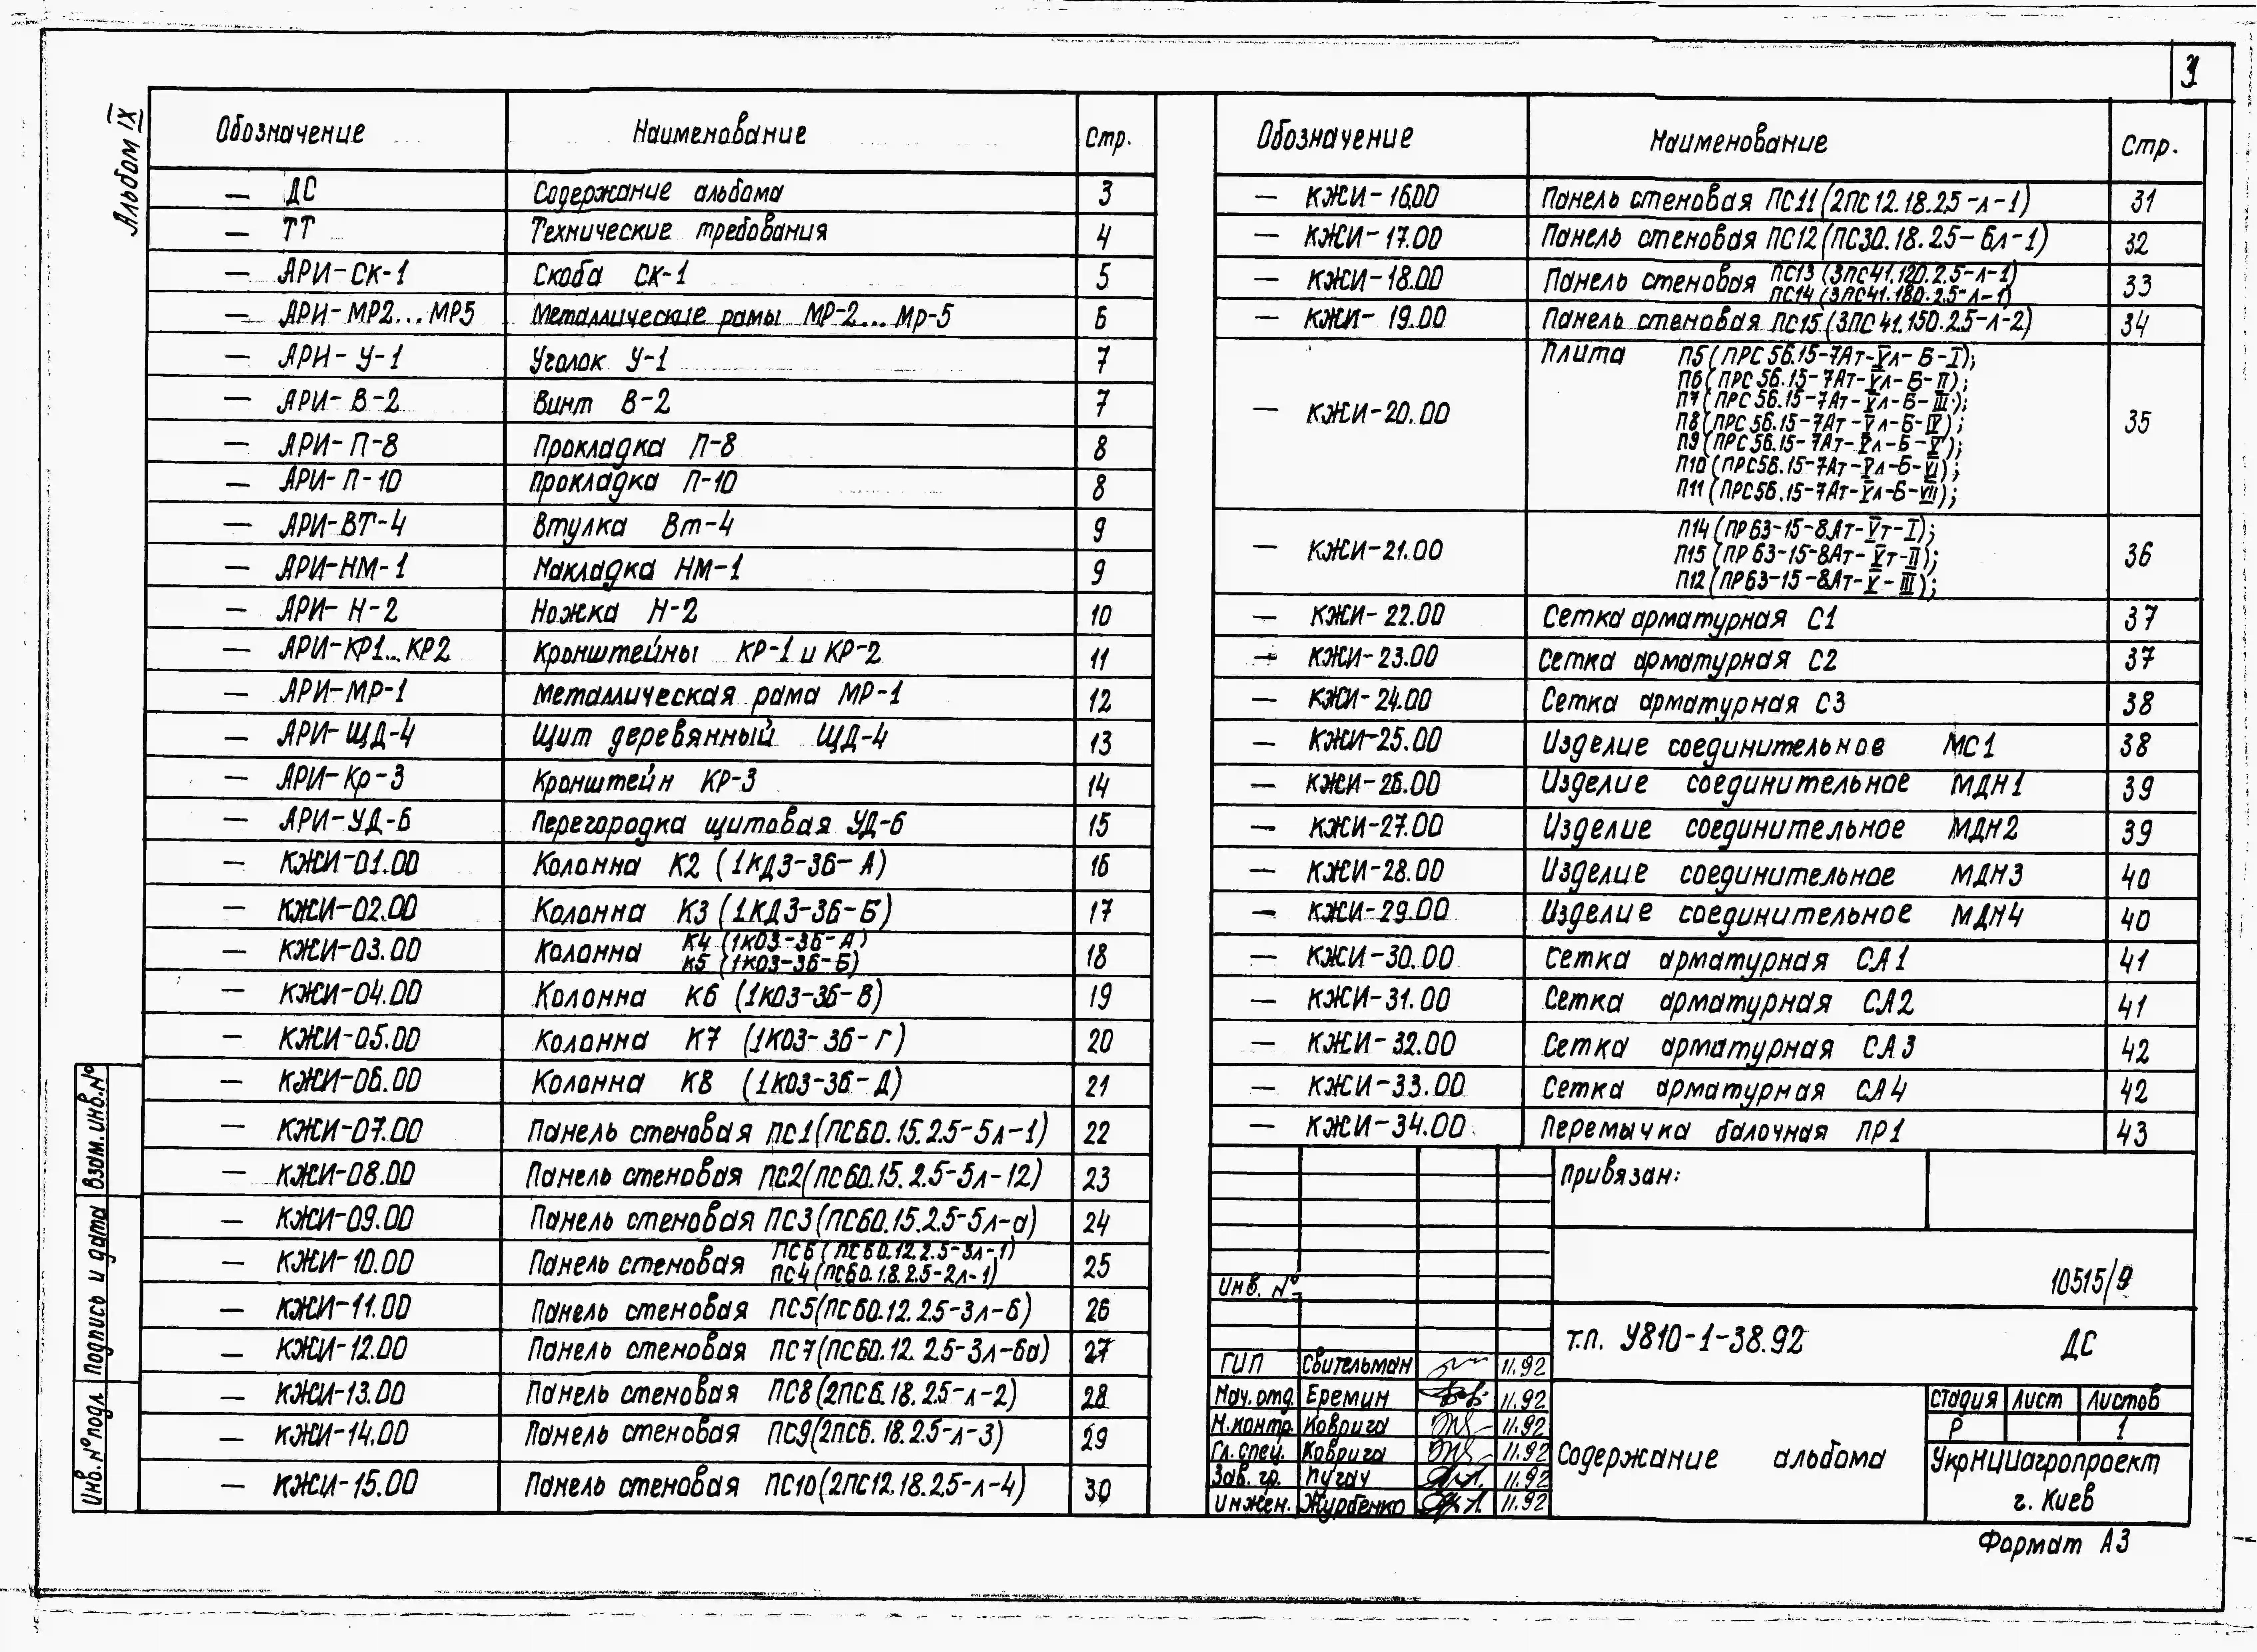 3
Альбом IX
Обозначение Наименование Стр.
— ДС Содержание альбома 3
— ТТ Технические требования 4
— АРИ-СК-1 Скоба СК-1 5
— АРИ-МР2...МР5 Металлические рамы МР-2...Мр-5 6
— АРИ-У-1 Уголок У-1 7
— АРИ-В-2 Винт В-2 7
— АРИ-П-8 Прокладка П-8 8
— АРИ-П-10 Прокладка П-10 8
— АРИ-ВТ-4 Втулка Вт-4 9
— АРИ-НМ-1 Накладка НМ-1 9
— АРИ-Н-2 Ножка Н-2 10
— АРИ-КР1...КР2 Кронштейны КР-1 и КР-2 11
— АРИ-МР-1 Металлическая рама МР-1 12
— АРИ-ЩД-4 Щит деревянный ЩД-4 13
— АРИ-Кр-3 Кронштейн КР-3 14
— АРИ-УД-6 Перегородка щитовая УД-6 15
— КЖИ-01.00 Колонна К2 (1КД3-36-А) 16
— КЖИ-02.00 Колонна К3 (1КД3-36-Б) 17
— КЖИ-03.00 Колонна К4 (1К03-36-А)
К5 (1К03-36-Б) 18
— КЖИ-04.00 Колонна К6 (1К03-36-В) 19
— КЖИ-05.00 Колонна К7 (1К03-36-Г) 20
— КЖИ-06.00 Колонна К8 (1К03-36-Д) 21
— КЖИ-07.00 Панель стеновая ПС1(ПС60.15.2.5-5л-1) 22
— КЖИ-08.00 Панель стеновая ПС2(ПС60.15.2.5-5л-12) 23
— КЖИ-09.00 Панель стеновая ПС3(ПС60.15.2.5-5л-а) 24
— КЖИ-10.00 Панель стеновая ПС6 (ПС60.12.2.5-3л-1)
ПС4 (ПС60.18.2.5-2л-1) 25
— КЖИ-11.00 Панель стеновая ПС5(ПС60.12.2.5-3л-6) 26
— КЖИ-12.00 Панель стеновая ПС7(ПС60.12.2.5-3л-6а) 27
— КЖИ-13.00 Панель стеновая ПС8(2ПС6.18.2.5-л-2) 28
— КЖИ-14.00 Панель стеновая ПС9(2ПС6.18.2.5-л-3) 29
— КЖИ-15.00 Панель стеновая ПС10(2ПС12.18.2,5-л-4) 30
Обозначение Наименование Стр.
— КЖИ-16.00 Панель стеновая ПС11(2ПС12.18.2.5-л-1) 31
— КЖИ-17.00 Панель стеновая ПС12(ПС30.18.2.5-6л-1) 32
— КЖИ-18.00 Панель стеновая ПС13 (3ПС41.120.2.5-л-1)
ПС14 (3ПС41.180.2.5-л-1) 33
— КЖИ-19.00 Панель стеновая ПС15 (3ПС41.150.2.5-л-2) 34
— КЖИ-20.00 Плита П5(ПРС56.15-7Ат-Vл-Б-I);
П6(ПРС56.15-7Ат-Vл-Б-II);
П7(ПРС56.15-7Ат-Vл-Б-III);
П8(ПРС56.15-7Ат-Vл-Б-IV);
П9(ПРС56.15-7Ат-Vл-Б-V);
П10(ПРС56.15-7Ат-Vл-Б-VI);
П11(ПРС56.15-7Ат-Vл-Б-VII); 35
— КЖИ-21.00 П14(ПР63-15-8Ат-Vт-I);
П15(ПР63-15-8Ат-Vт-II);
П12(ПР63-15-8Ат-V-III); 36
— КЖИ-22.00 Сетка арматурная С1 37
— КЖИ-23.00 Сетка арматурная С2 37
— КЖИ-24.00 Сетка арматурная С3 38
— КЖИ-25.00 Изделие соединительное МС1 38
— КЖИ-26.00 Изделие соединительное МДН1 39
— КЖИ-27.00 Изделие соединительное МДН2 39
— КЖИ-28.00 Изделие соединительное МДН3 40
— КЖИ-29.00 Изделие соединительное МДН4 40
— КЖИ-30.00 Сетка арматурная СА1 41
— КЖИ-31.00 Сетка арматурная СА2 41
— КЖИ-32.00 Сетка арматурная СА3 42
— КЖИ-33.00 Сетка арматурная СА4 42
— КЖИ-34.00 Перемычка балочная ПР1 43
Привязан:
Инв. №
10515/9
т.п. У810-1-38.92 ДС
ГИП Свительман 11.92
Нач.отд. Еремин 11.92
Н.контр. Коврига 11.92
Гл.спец. Коврига 11.92
Зав. гр. Пугач 11.92
инжен. Журбенко 11.92
Содержание альбома
Стадия Лист Листов
Р 1
УкрНИИагропроект
г. Киев
Формат А3
Взам.инв.№
Подпись и дата
Инв.№подл.